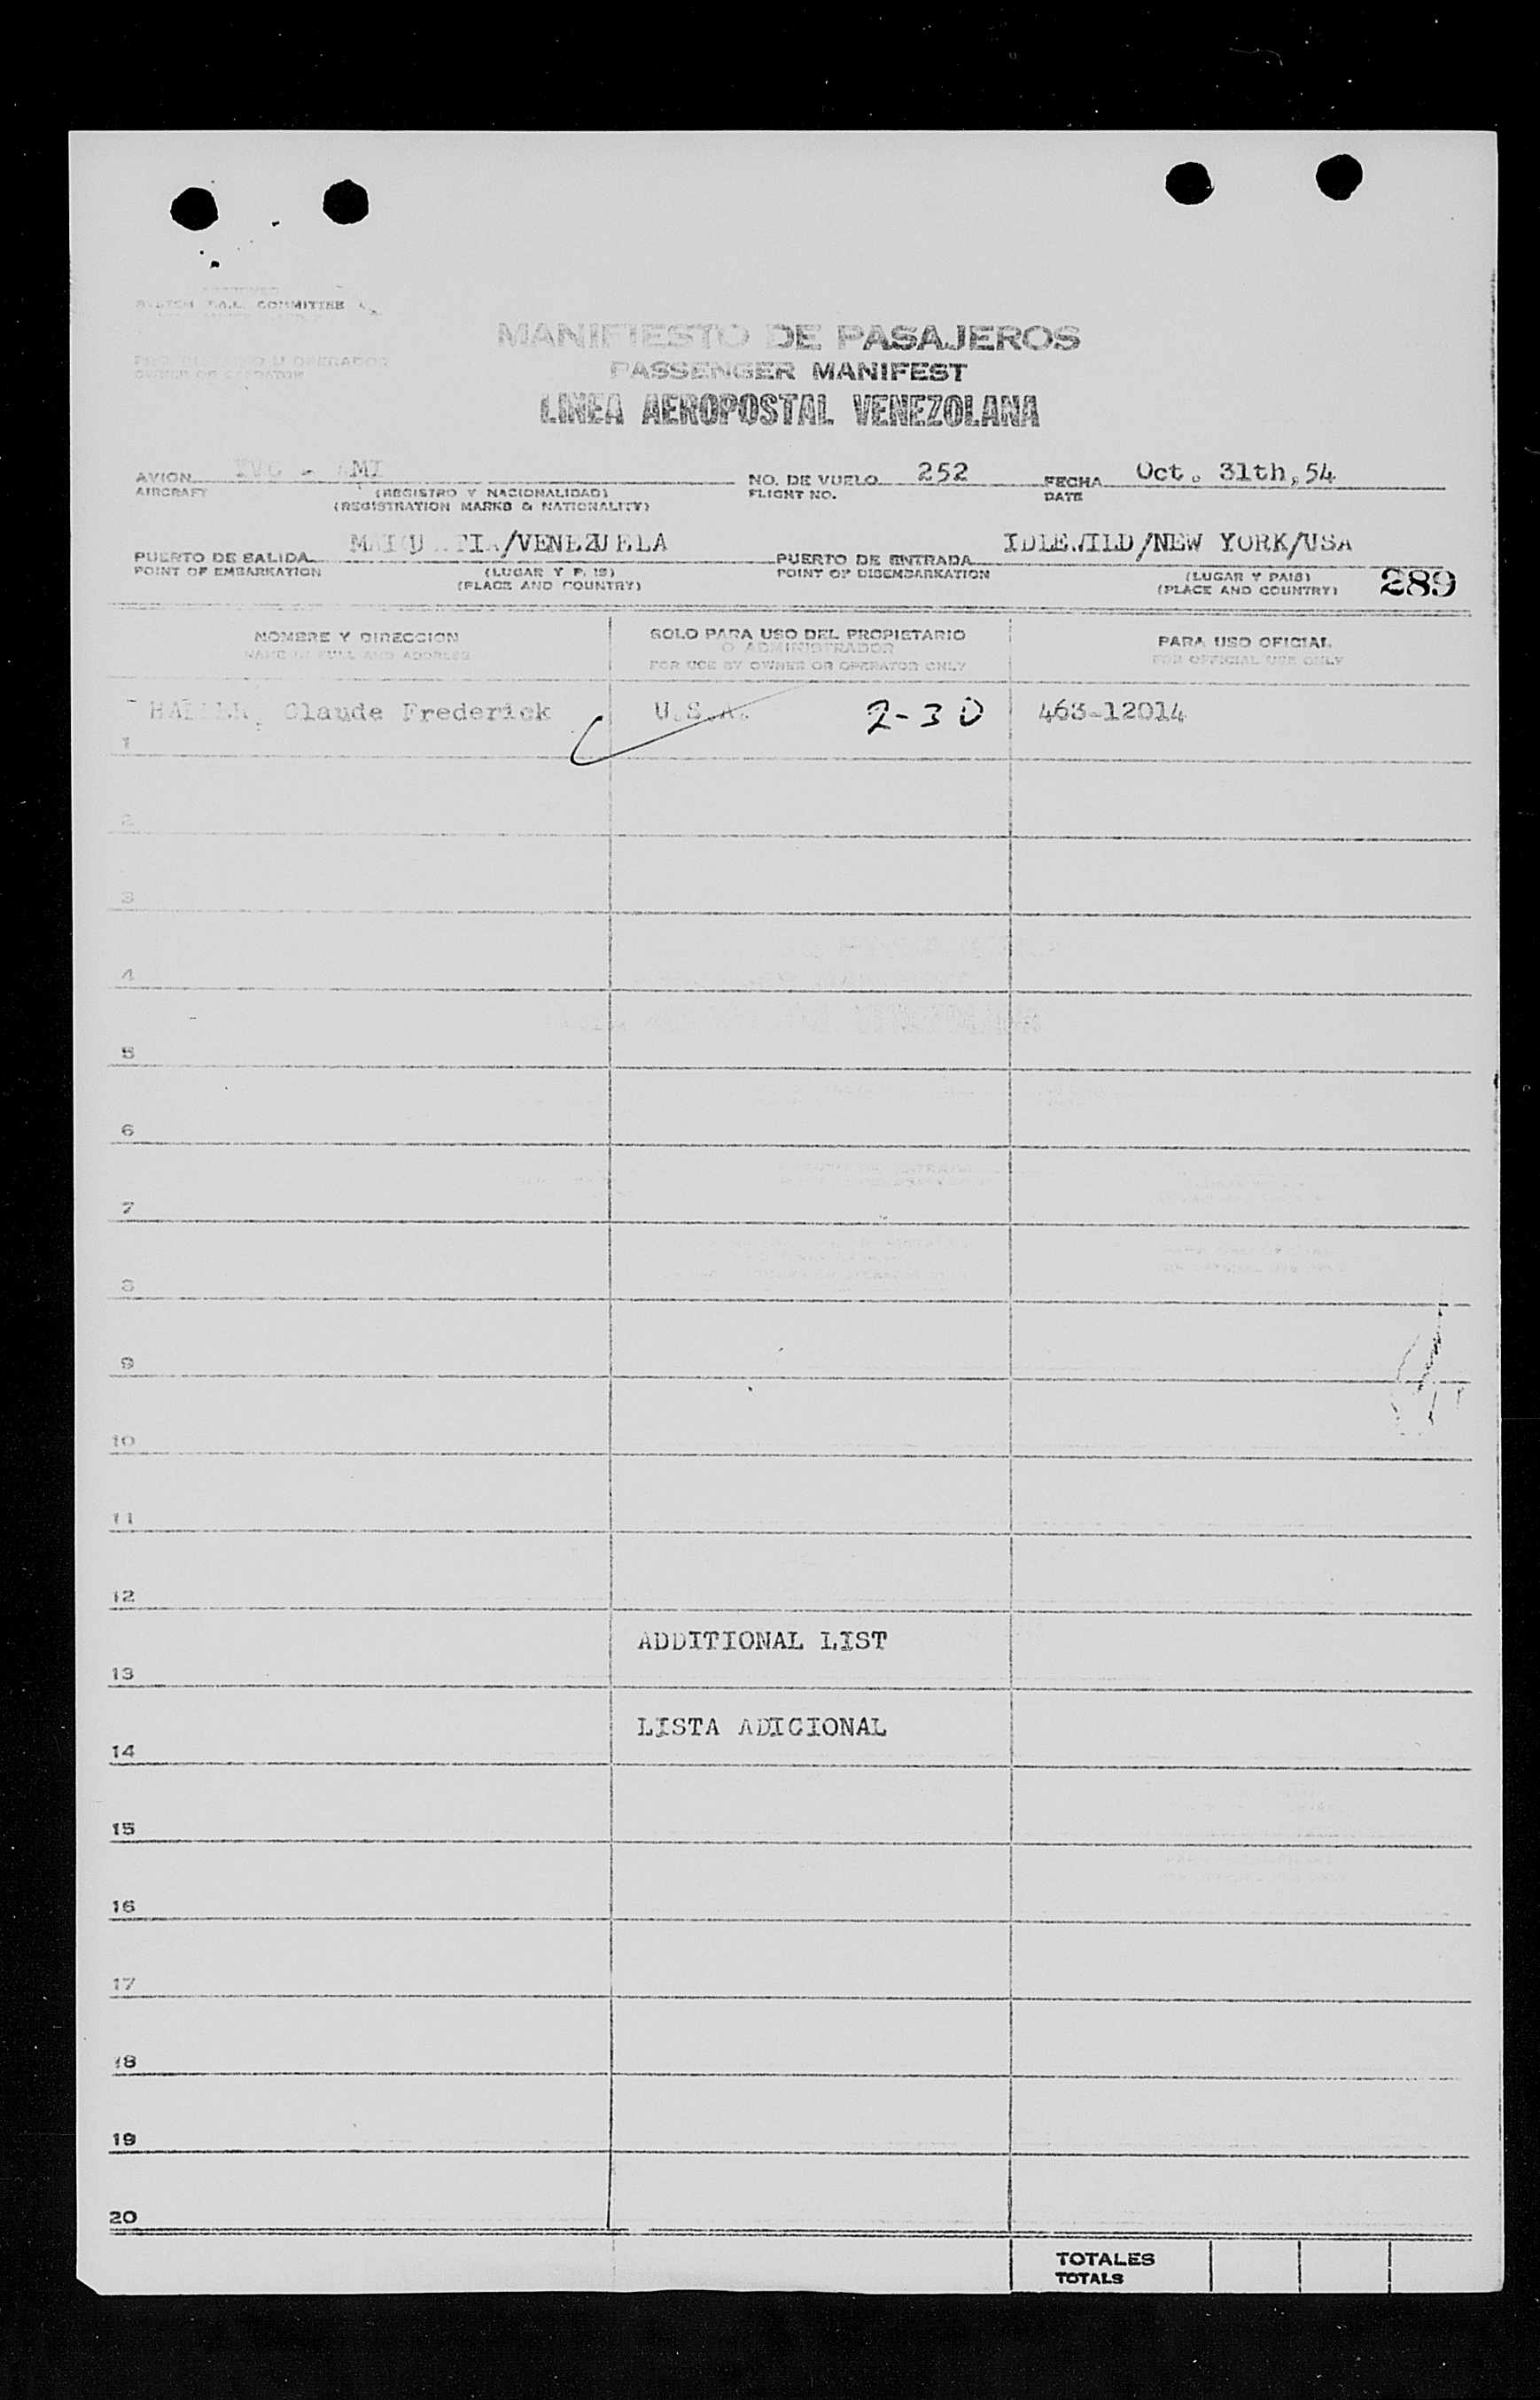 COMMITTEE
MANIFIESTO DE PASAJEROS
PASSENGER MANIFEST
OWNER OR OPERATOR
LINEA AEROPOSTAL VENEZOLANA
AVION NO. DE VUELO 252 FECHA Oct. 31th,54
AIRCRAFT (REGISTRO Y NACIONALIDAD) FLIGHT NO. DATE
(REGISTRATION MARKS & NATIONALITY)
PUERTO DE SALIDA /VENEZUELA PUERTO DE ENTRADA IDLEWILD/NEW YORK/USA
POINT OF EMBARKATION (LUGAR Y PAIS) POINT OF DISEMBARKATION (LUGAR Y PAIS)
(PLACE AND COUNTRY) (PLACE AND COUNTRY) 289
NOMBRE Y DIRECCION SOLO PARA USO DEL PROPIETARIO PARA USO OFICIAL
O ADMINISTRADOR
NAME IN FULL AND ADDRESS FOR USE BY OWNER OR OPERATOR ONLY FOR OFFICIAL USE ONLY
Claude Frederick U.S.A. 2-30 463-12014
1
2
3
4
5
6
7
8
9
10
11
12
ADDITIONAL LIST
13
LISTA ADICIONAL
14
15
16
17
18
19
20
TOTALES
TOTALS